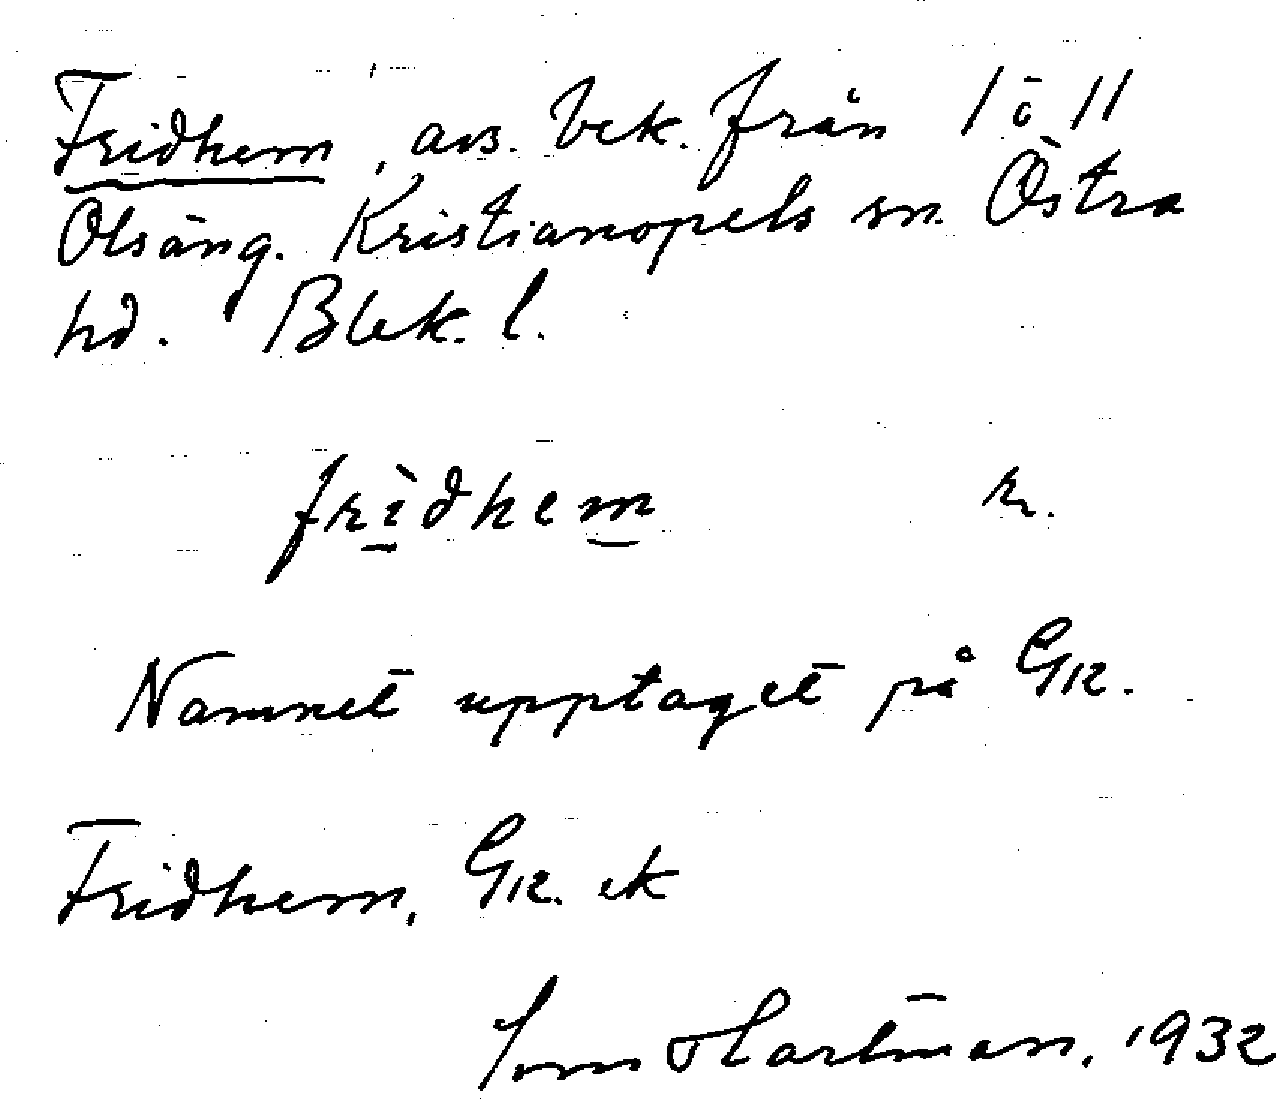 Fridhem, avs. bek. från 1 ö 11
Olsäng. Kristianopels sn. Östra
hd. Blek. l.
frìdhem r.
Namnet upptaget på Gk.
Fridhem, Gk. ek
Hartman, 1932